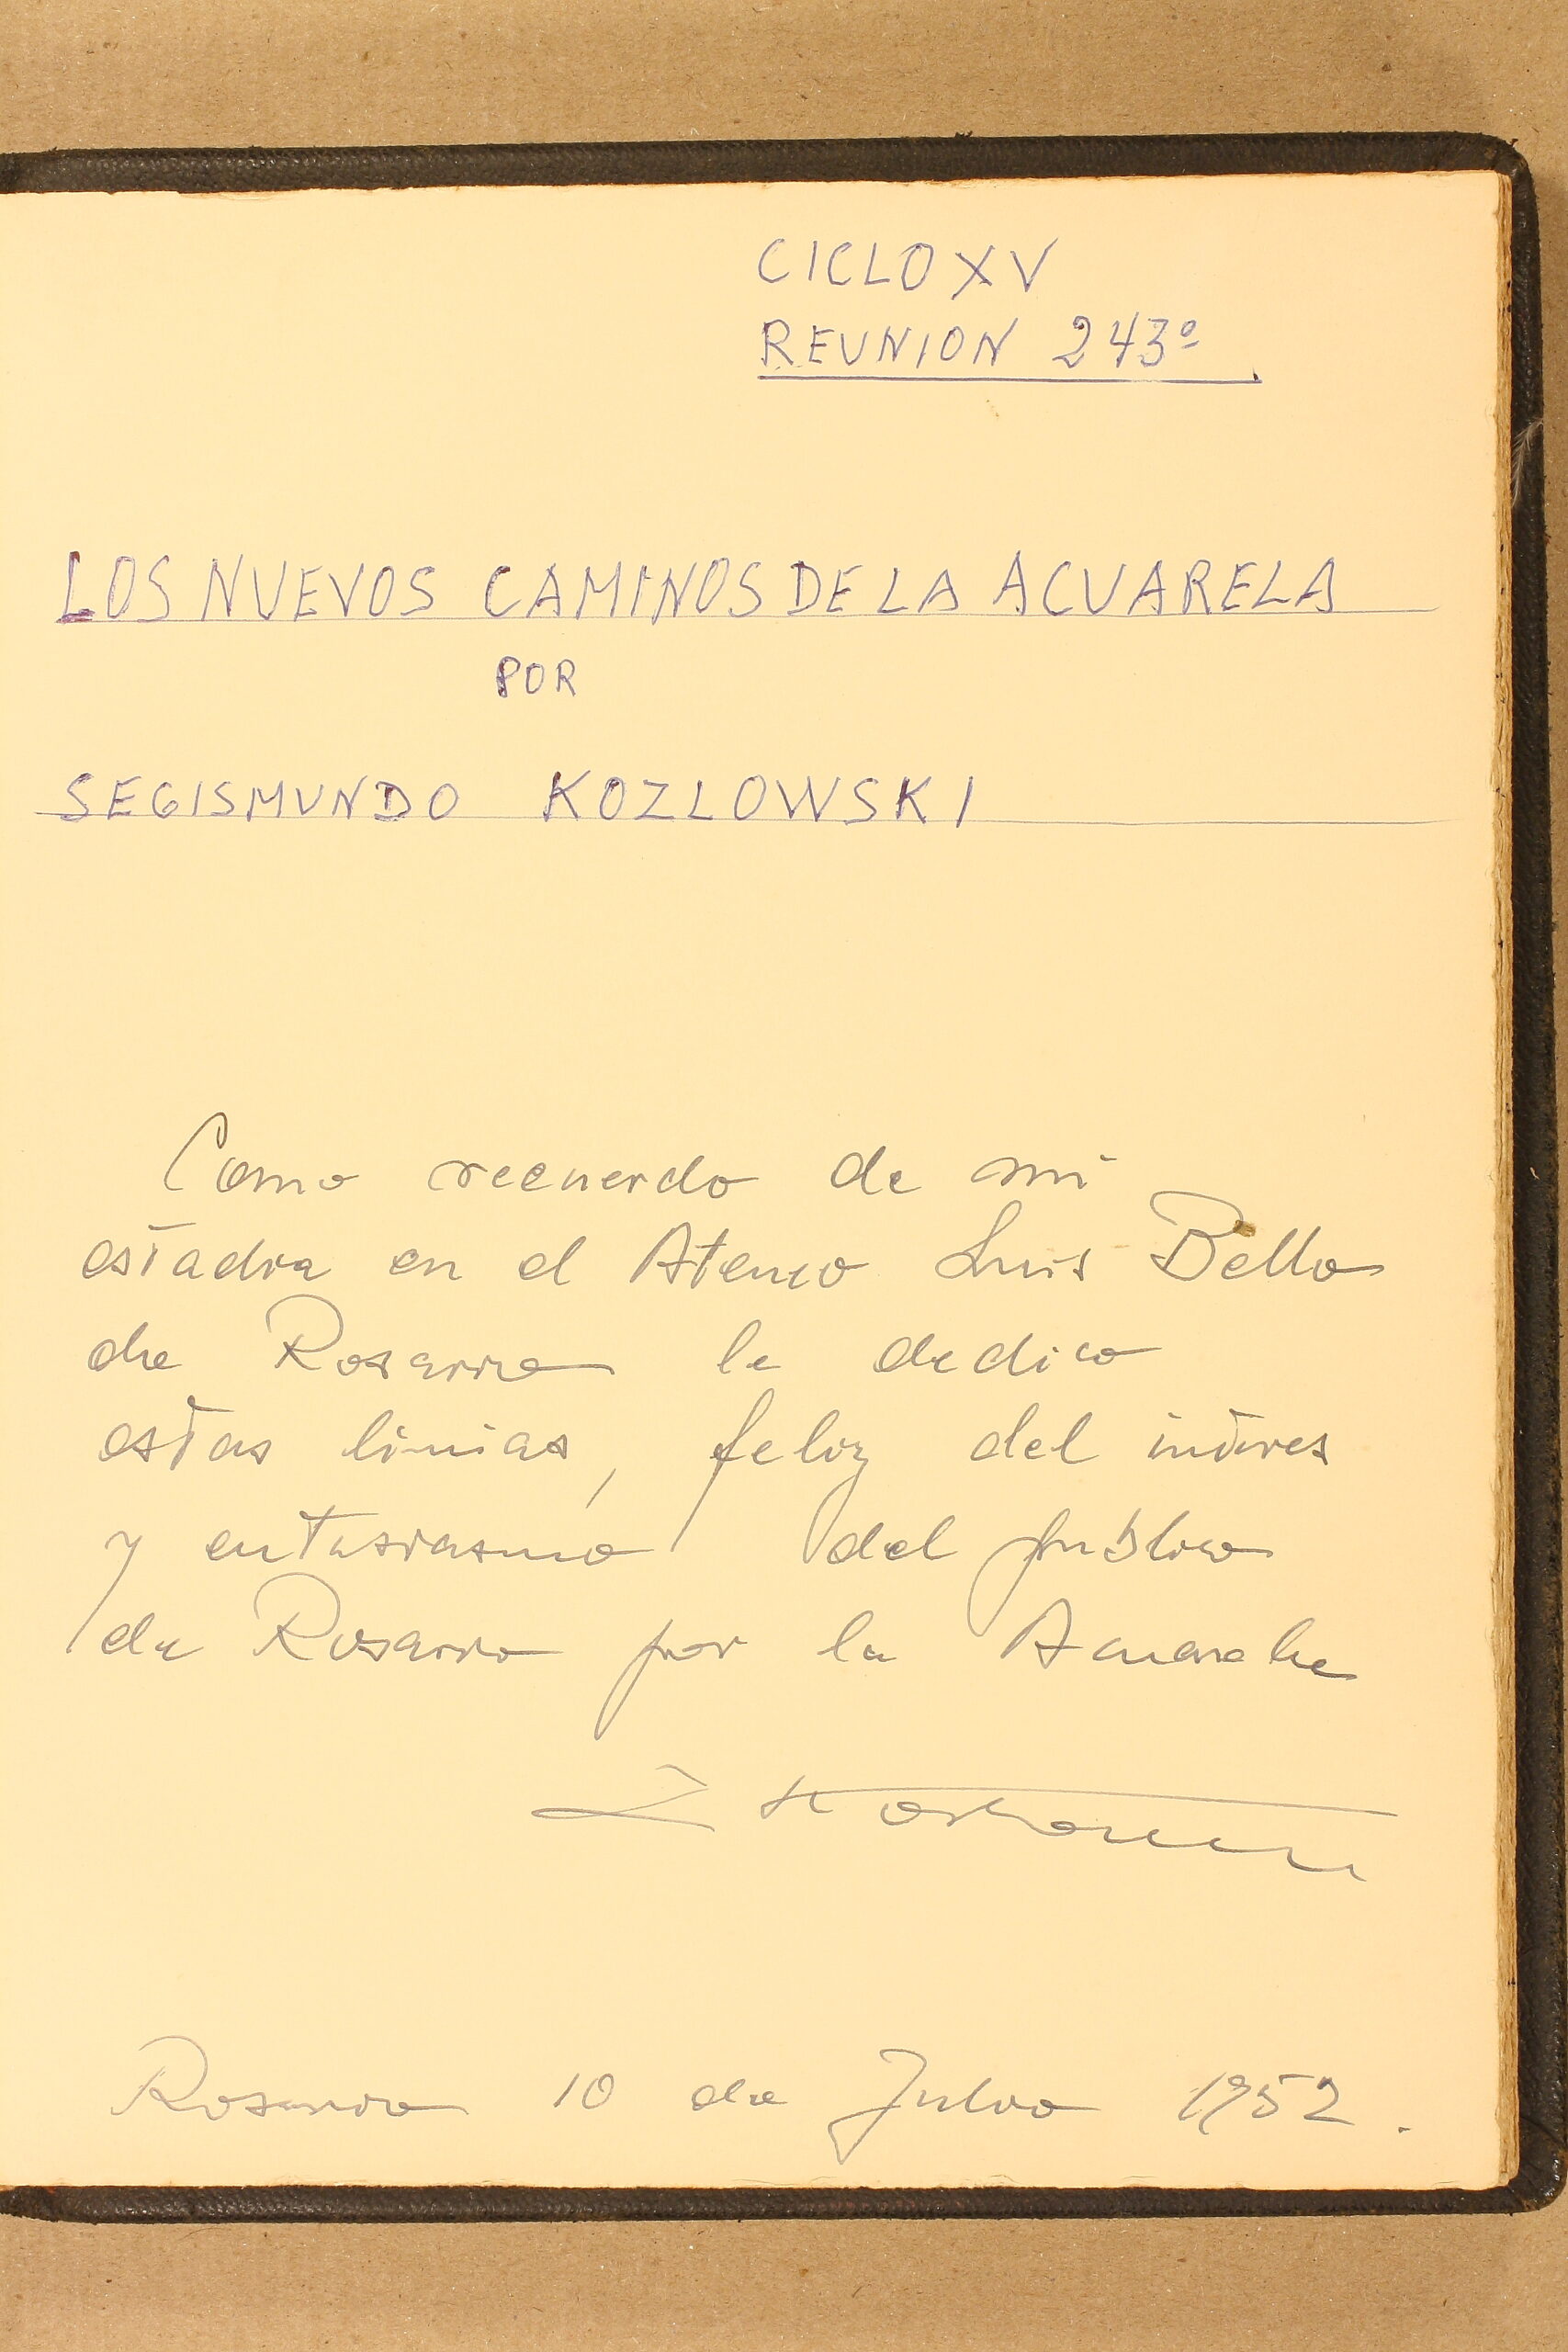 CICLO XV
REUNION 243º
LOS NUEVOS CAMINOS DE LA ACUARELA
POR
SEGISMUNDO KOZLOWSKI
Como recuerdo de mi
estadia en el Ateneo Luis Bello
de Rosario le dedico
estas linias, feliz del interes
y entusiasmo del publico
de Rosario por la Acuarela
Rosario 10 de Julio 1952.